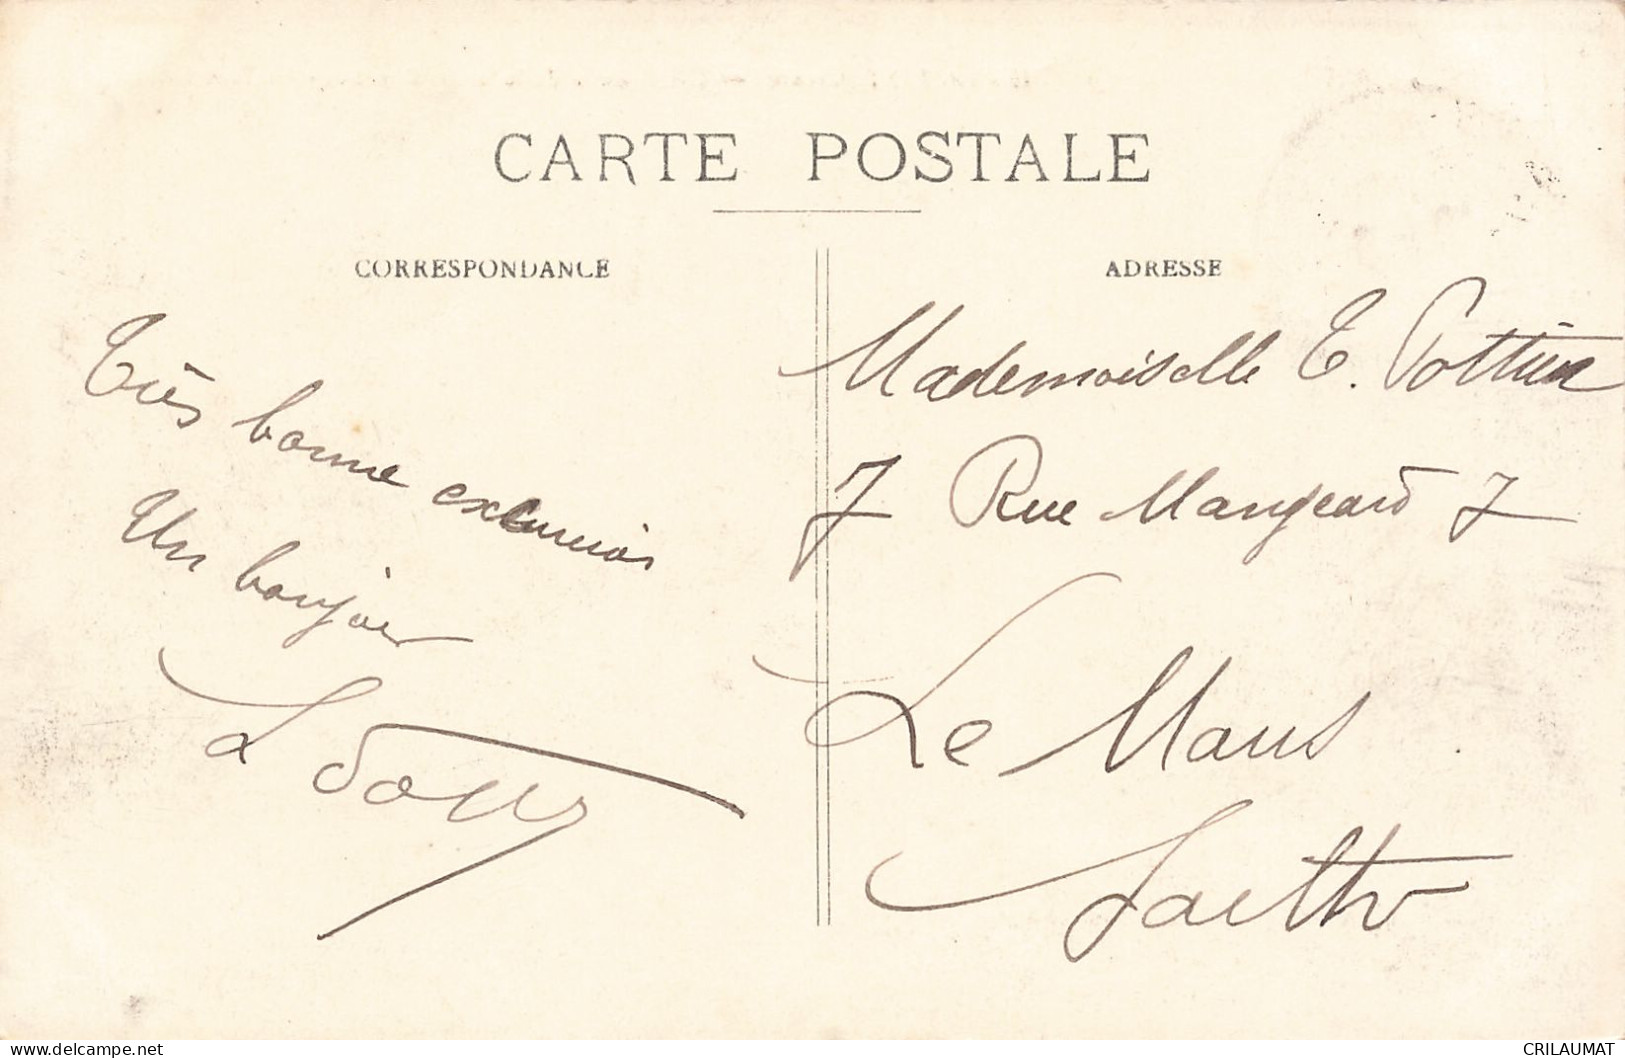 CARTE POSTALE
CORRESPONDANCE
ADRESSE
Très bonne excursion
Un bonjour
Mademoiselle E. Pottier
7 Rue Mangeard 7
Le Mans
Sarthe
www.delcampe.net
CRILAUMAT